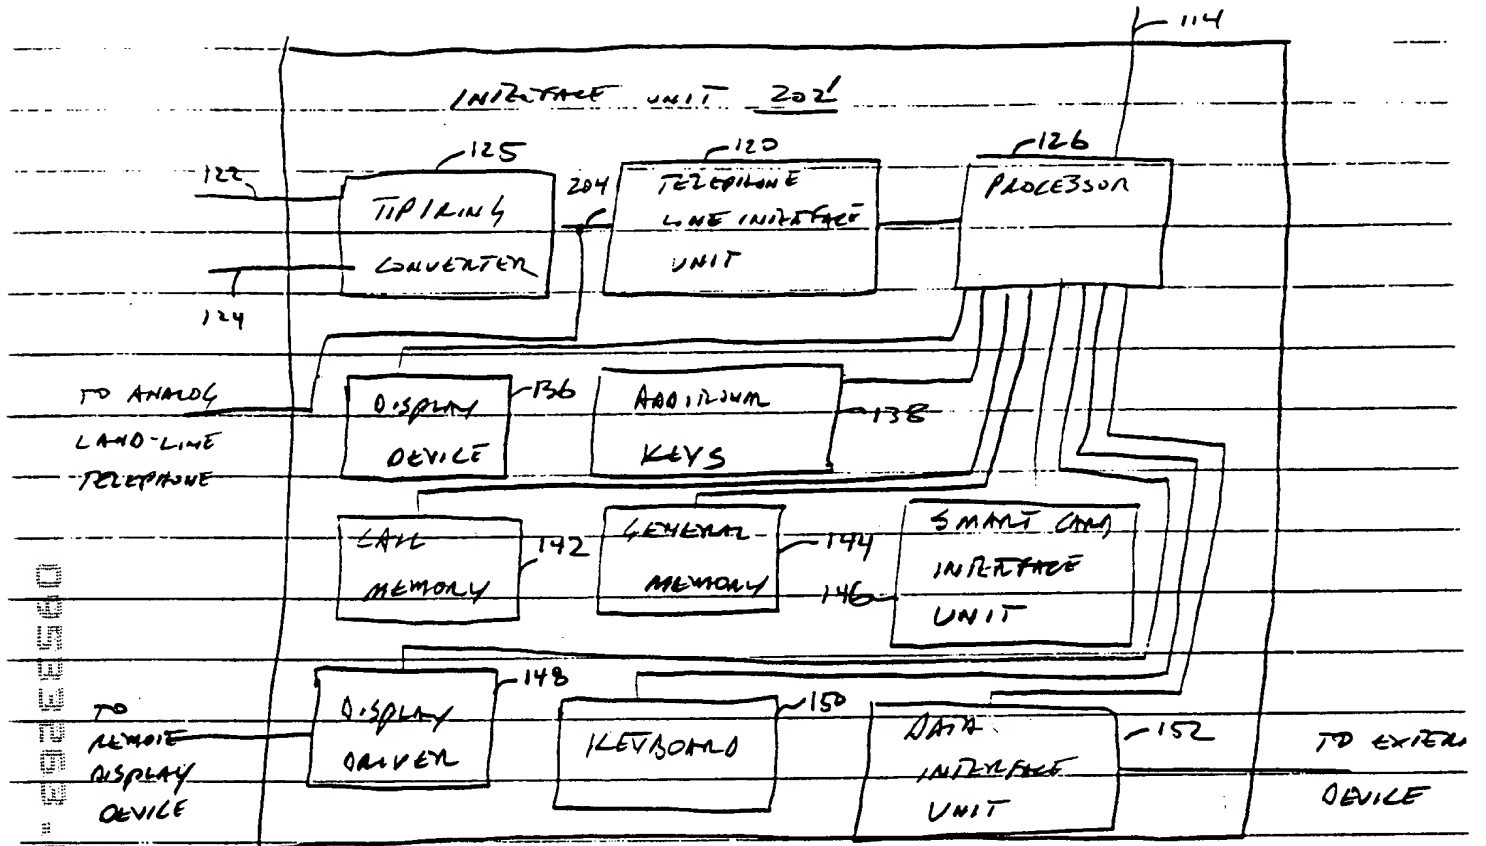 114
INTERFACE UNIT 202'
122
125
TIP/RING
CONVERTER
124
204
120
TELEPHONE
LINE INTERFACE
UNIT
126
PROCESSOR
TO ANALOG
LAND-LINE
TELEPHONE
DISPLAY
DEVICE
136
ADDITIONAL
KEYS
138
CALL
MEMORY
142
GENERAL
MEMORY
144
146
SMART CARD
INTERFACE
UNIT
TO
REMOTE
DISPLAY
DEVICE
148
DISPLAY
DRIVER
150
KEYBOARD
DATA
INTERFACE
UNIT
152
TO EXTERN
DEVICE
09533263.